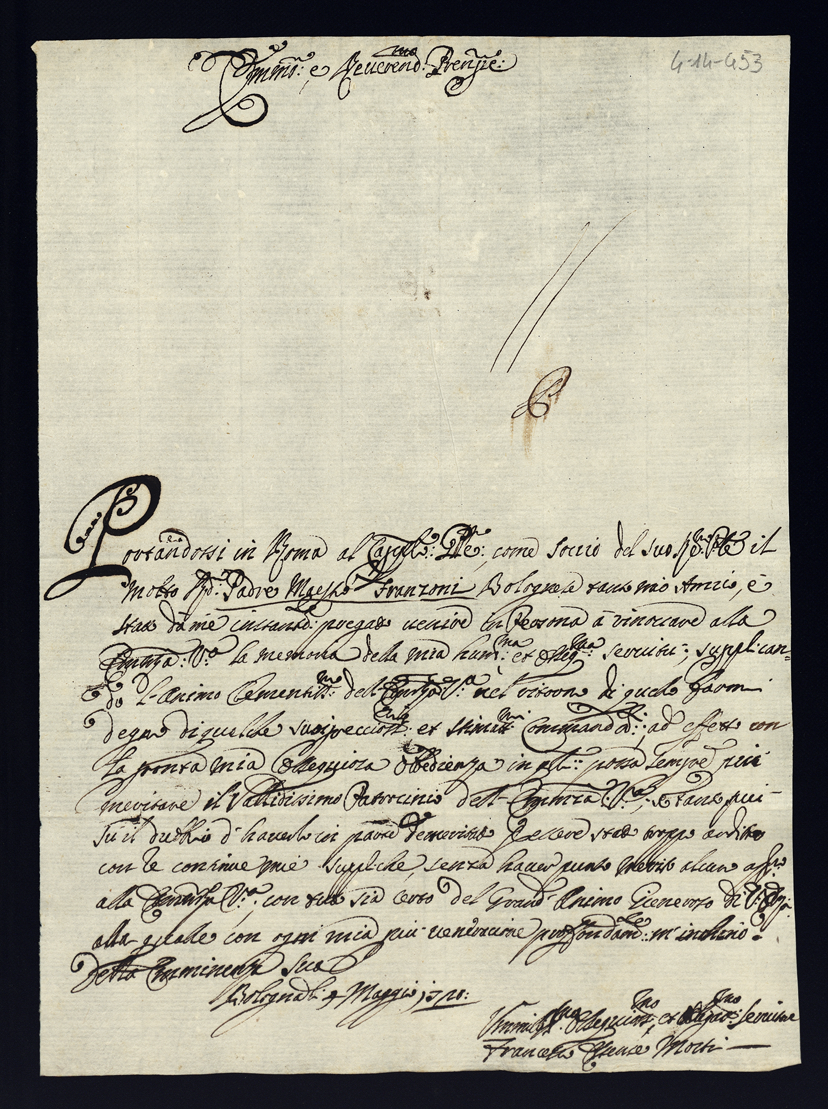 4-14-453
Emin: e Reverend.mo Prenpe:
Portandosi in Roma al Capolo: come Socio del suo il
molto Rd: Padre Maestro Franzoni Bolognese tanto mio Amico, è
stato da me pregato in Persona à rinovare alla
Eminza: V.ra la memoria della mia hum.ma et servitù, supplican=
do l'Animo Clementiss.mo dell' Eminza V.ra nel ritorno di quelo farmi
degno di qualche suo et stimat.mi Commando, ad effetto con
la pronta mia Osseguiosa Obedienza possa sempre più
meritare il Vallidissimo Patrocinio dell' Eminza V.ra, e tanto più
sù il dubbio d'haverlo in parte essere stato troppo ardito
con le continue mie suppliche, senza haver punto merito alcuno
alla Eminza V.ra con tutto sia certo del Grand' Animo Generoso di V.
alla quale con ogni mia più veneratione profondam.te m'inchino.
Della Eminenza Sua
Bologna li: 4 Maggio 1720:
Umiliss.mo Ossequios.mo et Servitore
Francesco Monti